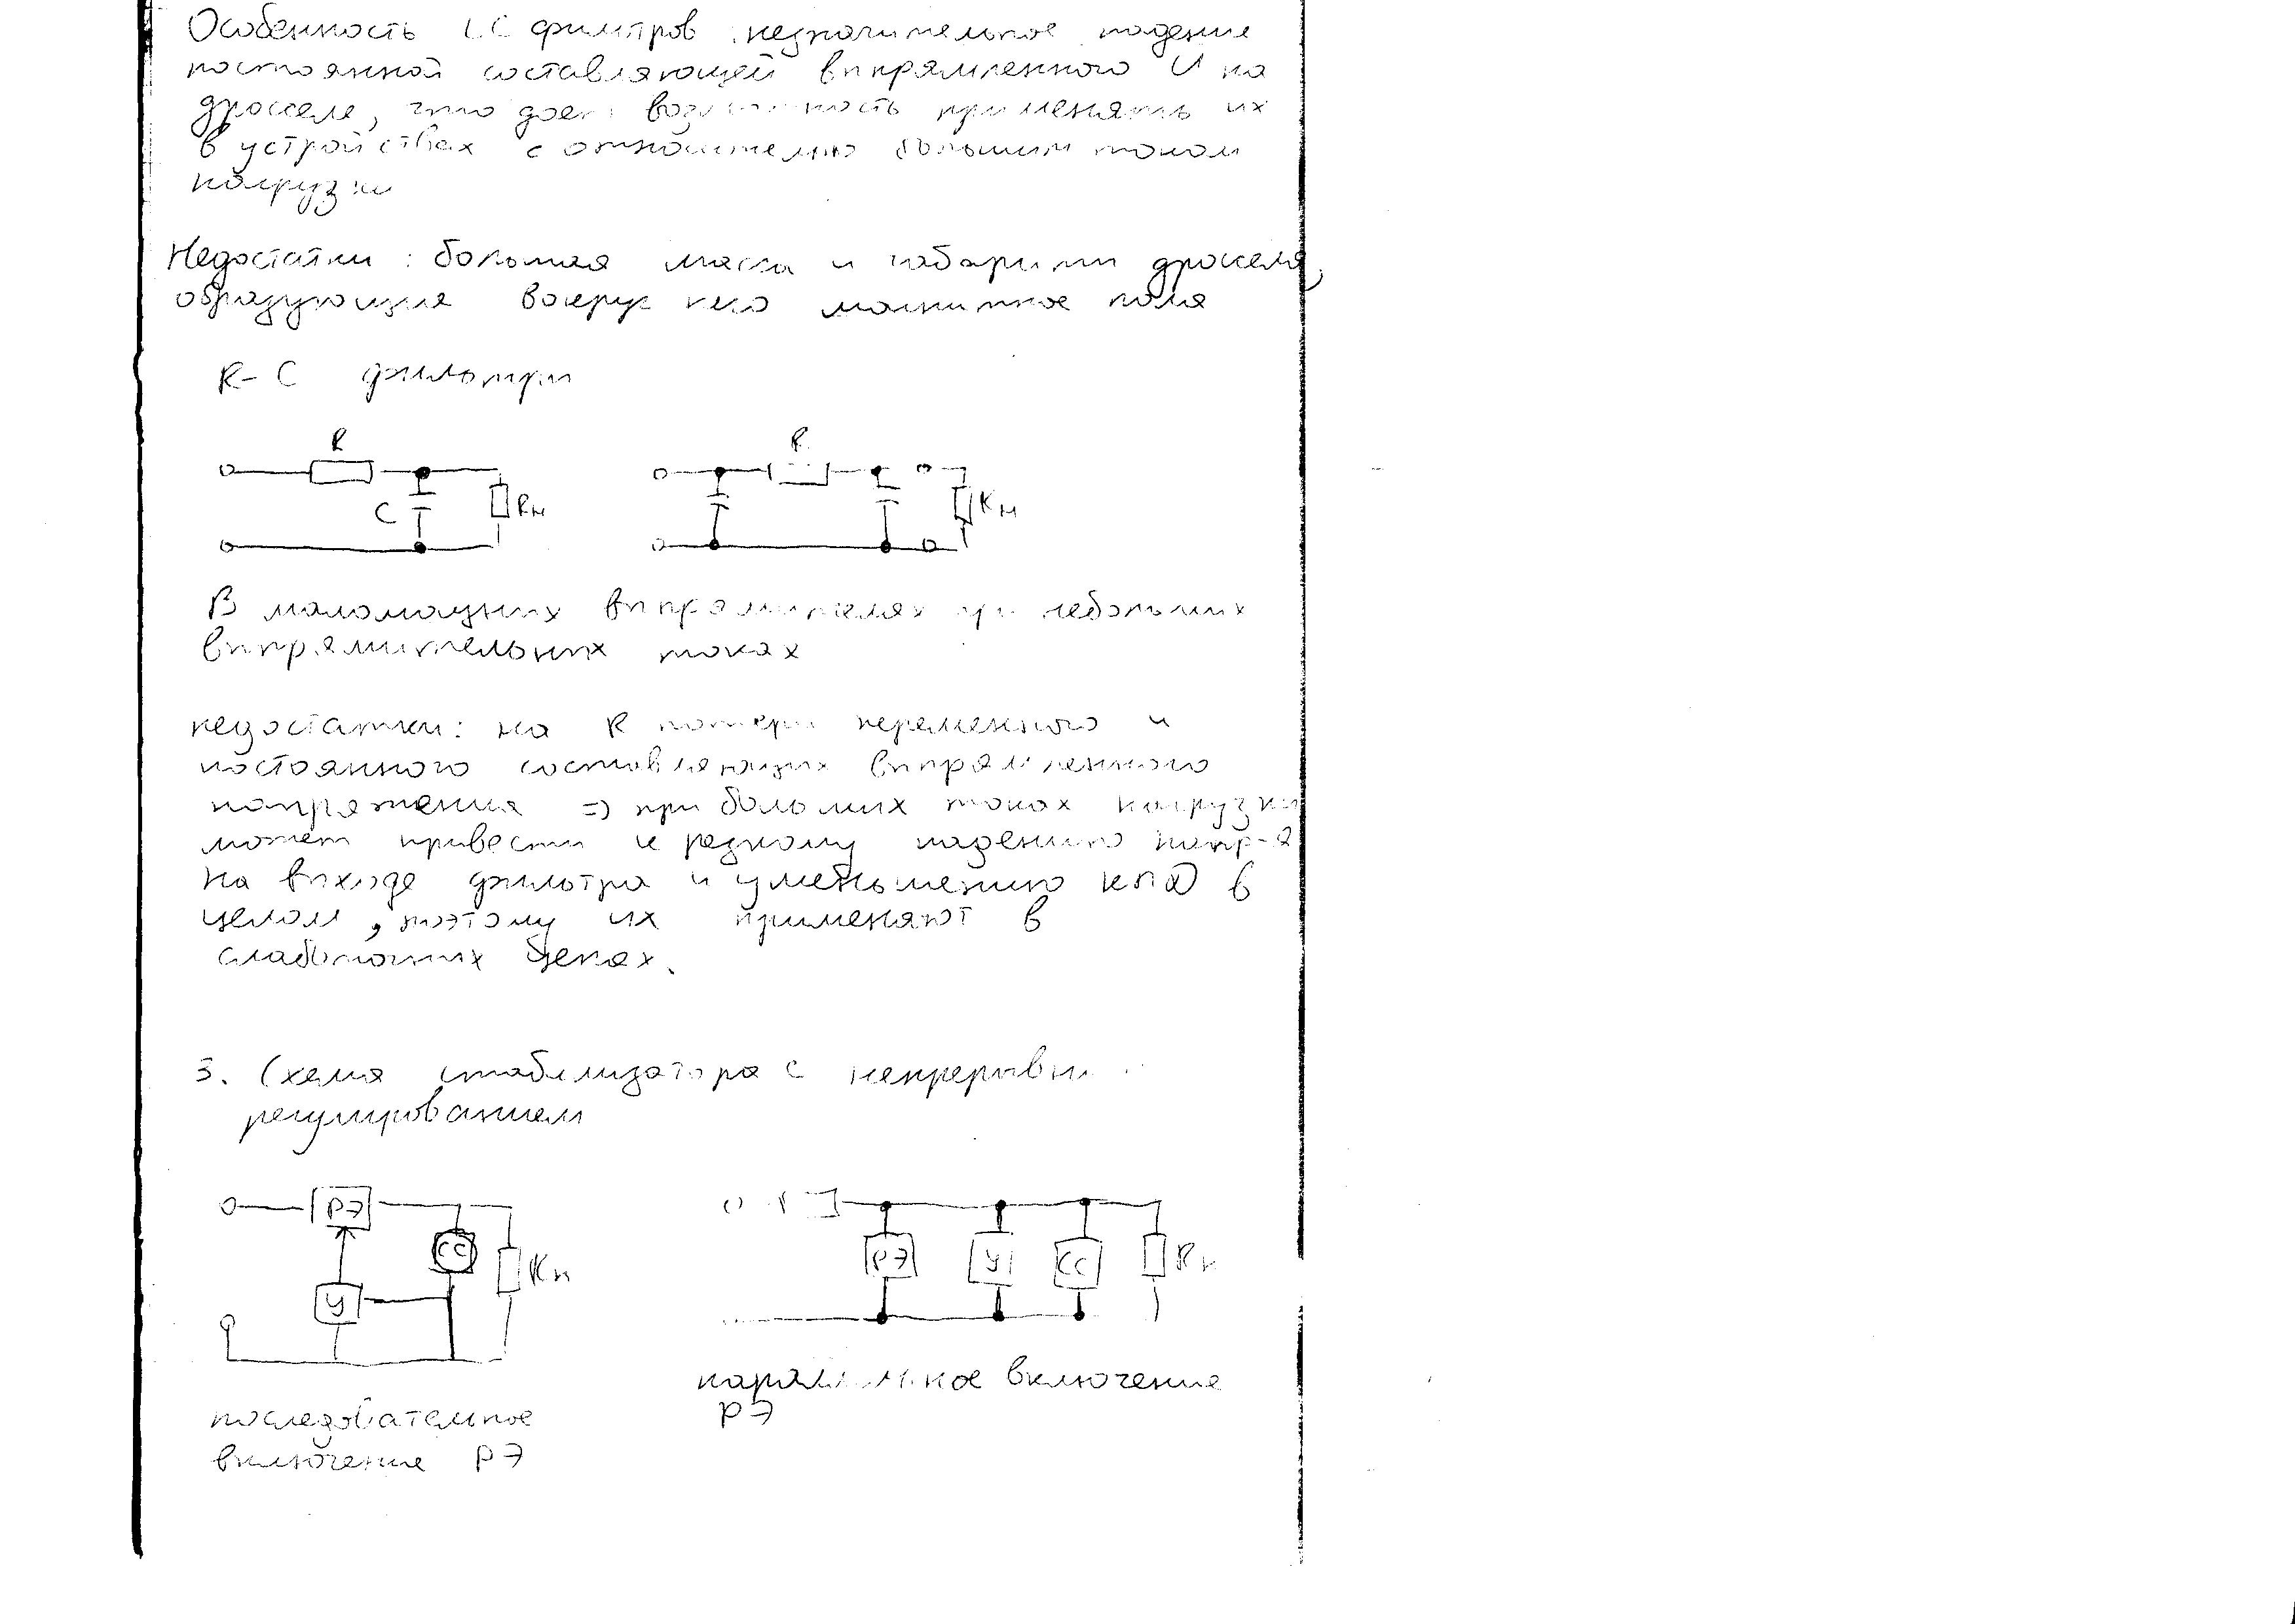 Особенность LC фильтров незначительное падение
постоянной составляющей выпрямленного U на
дросселе, что дает возможность применять их
в устройствах с относительно большим током
нагрузки
Недостатки: большая масса и габариты дросселя,
образующие вокруг него магнитное поля
R-C фильтры
R R
C Rн Rн
В маломощных выпрямителях при небольших
выпрямительных токах
недостатки: на R потери переменного и
постоянного составляющих выпрямленного
напряжения => при больших токах нагрузки
может привести к резкому падению напр-я
на выходе фильтра и уменьшению КПД в
целом, поэтому их применяют в
слаботочных цепях.
3. Схема стабилизатора с непрерывн
регулированием
РЭ
СС Rн РЭ У СС Rн
У
параллельное включение
РЭ
последовательное
включение РЭ